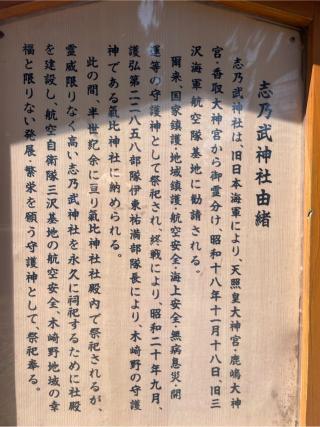 志乃武神社由緒
志乃武神社は、旧日本海軍により、天照皇大神宮・鹿嶋大神
宮・香取大神宮から御霊分け、昭和十八年十一月十八日、旧三
沢海軍航空隊基地に勧請される。
爾来、国家鎮護・地域鎮護・航空安全・海上安全・無病息災・開
運等の守護神として祭祀され、終戦により、昭和二十年九月、
護弘第二二八五八部隊伊東祐満部隊長により、木崎野の守護
神である氣比神社に納められる。
此の間、半世紀余に亘り氣比神社社殿内で祭祀されるが、
霊威限りなく高い志乃武神社を永久に祠祀するために社殿
を建設し、航空自衛隊三沢基地の航空安全、木崎野地域の幸
福と限りない発展・繁栄を願う守護神として、祭祀奉る。